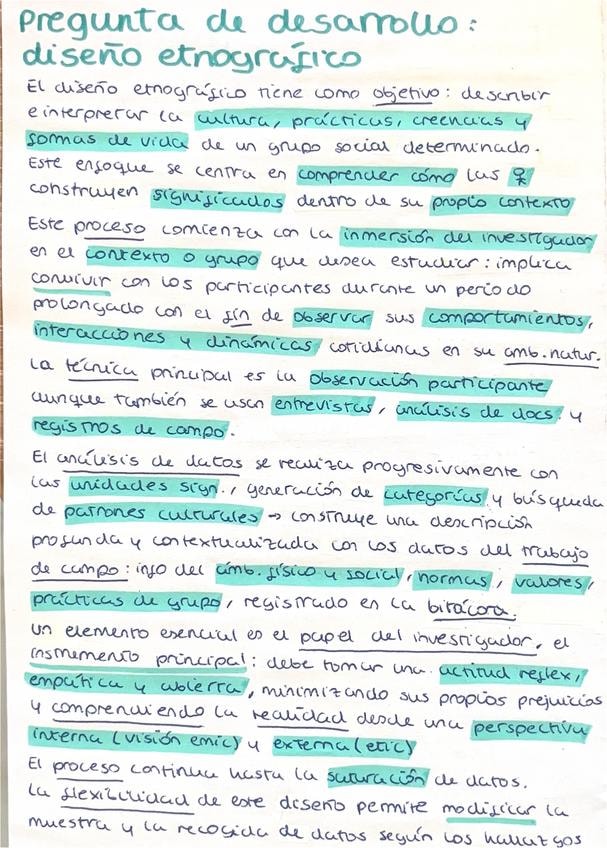 Pregunta de desarrollo:
diseño etnográfico
El diseño etnográfico tiene como objetivo: describir
e interpretar la cultura, prácticas, creencias y
formas de vida de un grupo social determinado.
Este enfoque se centra en comprender cómo las
construyen significados dentro de su propio contexto
Este proceso comienza con la inmersión del investigador
en el contexto o grupo que desea estudiar: implica
convivir con los participantes durante un periodo
prolongado con el fin de observar sus comportamientos,
interacciones y dinámicas cotidianas en su amb. natur.
La técnica principal es la observación participante
aunque también se usan entrevistas, análisis de docs. y
registros de campo.
El análisis de datos se realiza progresivamente con
las unidades sign., generación de categorías y búsqueda
de patrones culturales → construye una descripción
profunda y contextualizada con los datos del trabajo
de campo: info del amb. físico y social, normas, valores,
prácticas de grupo, registrado en la bitácora.
Un elemento esencial es el papel del investigador, el
instrumento principal: debe tomar una actitud reflex,
empática y abierta, minimizando sus propios prejuicios
y comprendiendo la realidad desde una perspectiva
interna (visión emic) y externa (etic)
El proceso continua hasta la saturación de datos.
La flexibilidad de este diseño permite modificar la
muestra y la recogida de datos según los hallazgos